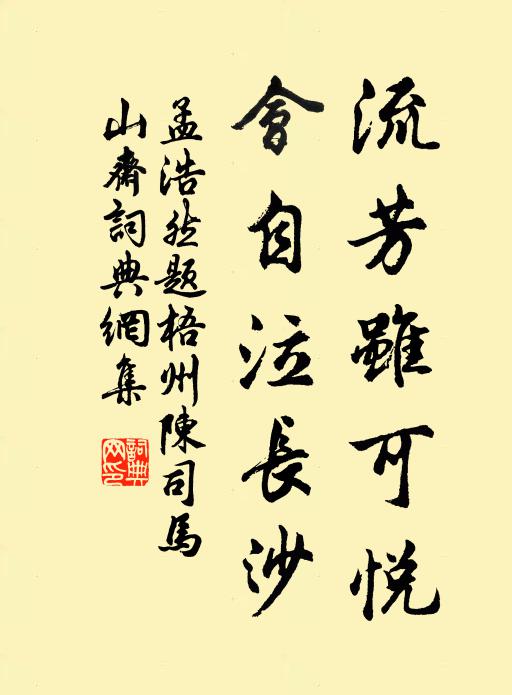 流芳雖可悅
會自泣長沙
孟浩然題梧州陳司馬
山齋詞典網集
詞典
网印